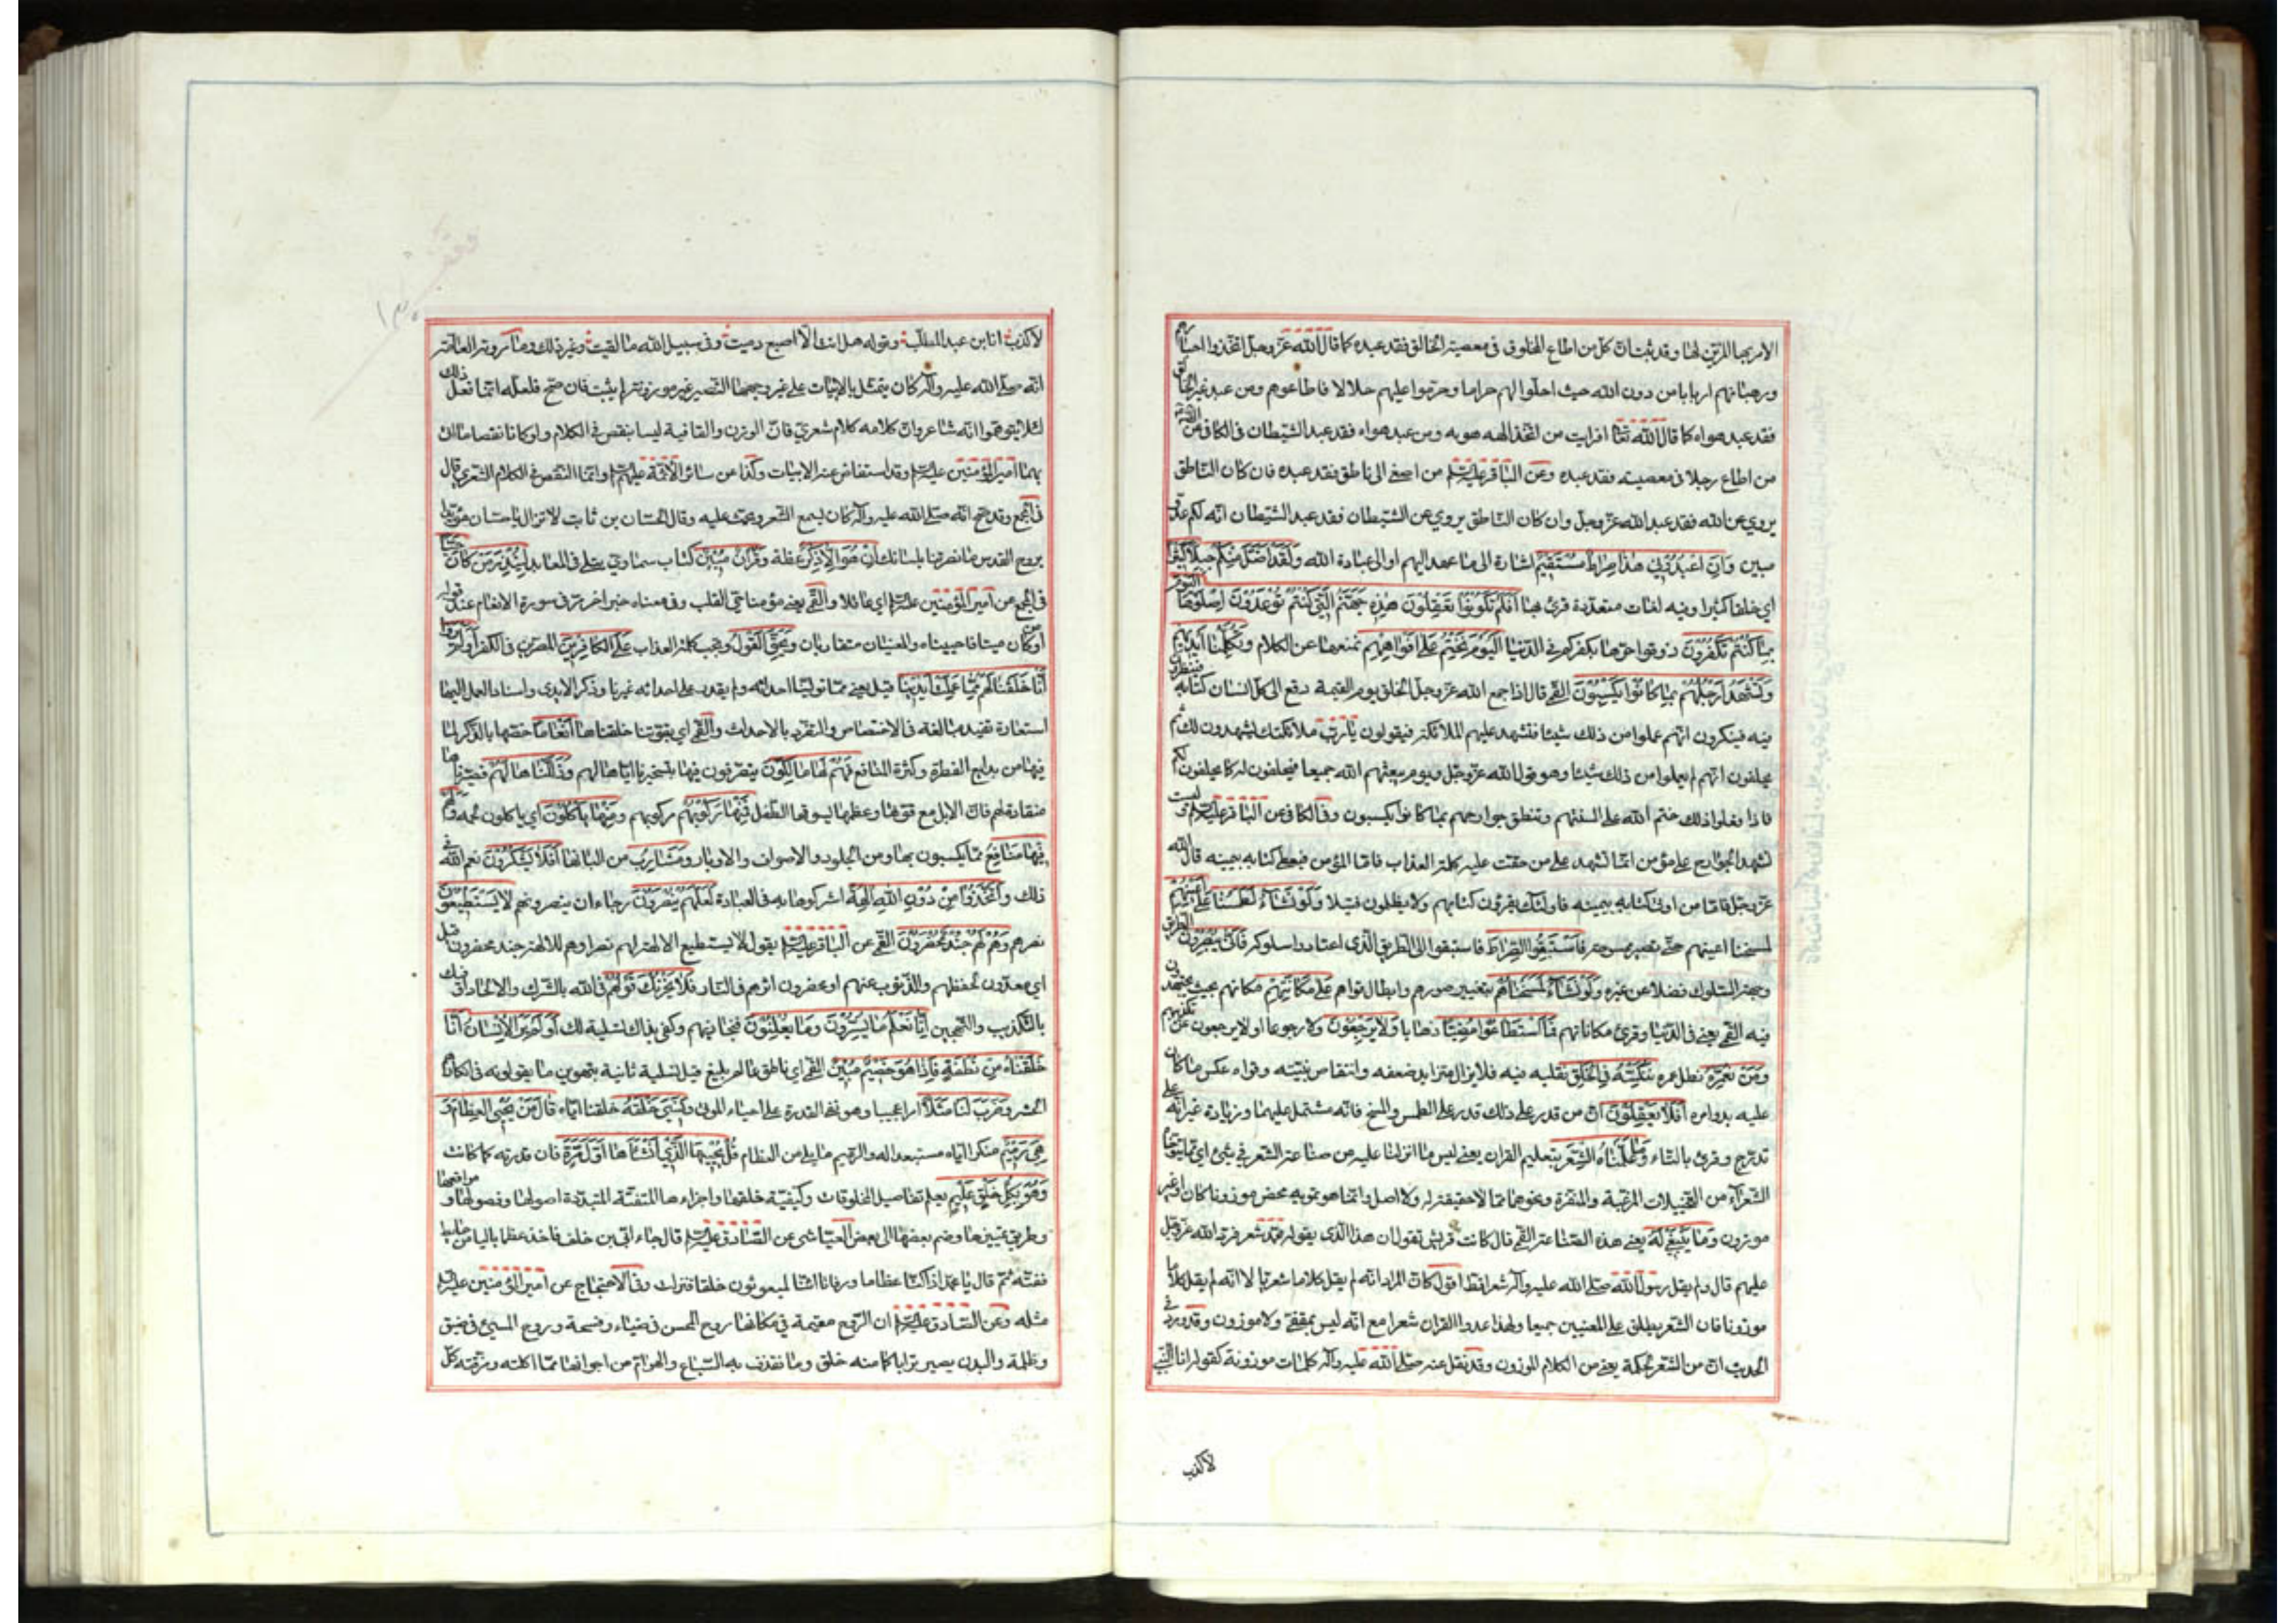 الامر بها المزيّن لها وقد ثبت انّ كل من اطاع المخلوق فى معصية الخالق فقد عبده كما قال الله عزّ وجلّ اتخذوا احبارهم
ورهبانهم اربابا من دون الله حيث احلّوا لهم حراما وحرّموا عليهم حلالا فاطاعوهم ومن عبد غير الله
فقد عبد هواه كما قال الله تعا افرايت من اتّخذ الهه هويه ومن عبد هواه فقد عبد الشيطان فى الكافى عن
من اطاع رجلا فى معصيته فقد عبده وعن الباقر من اصغى الى ناطق فقد عبده فان كان الناطق
يروى عن الله فقد عبد الله عزّ وجلّ وان كان الناطق يروى عن الشيطان فقد عبد الشيطان انّه لكم عدوّ
مبين وَاَنِ اعْبُدُونِى هٰذا صِراطٌ مُسْتَقِيمٌ اشارة الى ما عهد اليهم او الى عبادة الله وَلَقَدْ اَضَلَّ مِنْكُمْ جِبِلّاً كَثِيراً
اى خلقا كثيرا وفيه لغات متعدّدة قرئ بها اَفَلَمْ تَكُونُوا تَعْقِلُونَ هٰذِهِ جَهَنَّمُ الَّتِى كُنْتُمْ تُوعَدُونَ اِصْلَوْهَا الْيَوْمَ
بِما كُنْتُمْ تَكْفُرُونَ ذوقوا حرّها بكفركم فى الدنيا اَلْيَوْمَ نَخْتِمُ عَلى اَفْواهِهِمْ نمنعها عن الكلام وَتُكَلِّمُنا اَيْدِيهِمْ
وَتَشْهَدُ اَرْجُلُهُمْ بِما كانُوا يَكْسِبُونَ القمّى قال اذا جمع الله عزّ وجلّ الخلق يوم القيمة دفع الى كلّ انسان كتابه فينظرون
فيه فينكرون انّهم عملوا من ذلك شيئا فتشهد عليهم الملائكة فيقولون يا ربّ ملائكتك يشهدون لك ثم
يحلفون انّهم لم يعملوا من ذلك شيئا وهو قول الله عزّ وجلّ ويوم يبعثهم الله جميعا فيحلفون له كما يحلفون لكم
فاذا فعلوا ذلك ختم الله على السنتهم وتنطق جوارحهم بما كانوا يكسبون وفى الكافى عن الباقر وليست
تشهد الجوارح على مؤمن انما تشهد على من حقّت عليه كلمة العذاب فامّا المؤمن فيعطى كتابه بيمينه قال الله
عزّ وجلّ فامّا من اوتى كتابه بيمينه فاولئك يقرؤن كتابهم ولا يظلمون فتيلا وَلَوْ نَشاءُ لَطَمَسْنا عَلى اَعْيُنِهِمْ
لمسحنا اعينهم حتّى تصير ممسوحة فَاسْتَبَقُوا الصِّراطَ فاستبقوا الى الطريق الّذى اعتادوا سلوكه فَاَنّى يُبْصِرُونَ الطريق
وجهة السلوك فضلا عن غيره وَلَوْ نَشاءُ لَمَسَخْناهُمْ بتغيير صورهم وابطال قواهم عَلى مَكانَتِهِمْ مكانهم بحيث يجمدون
فيه القمّى يعنى فى الدنيا وقرئ مكاناتهم فَمَا اسْتَطاعُوا مُضِيّاً ذهابا وَلا يَرْجِعُونَ ولا رجوعا او لا يرجعون عن تكذيبهم
وَمَنْ نُعَمِّرْهُ نطل عمره نُنَكِّسْهُ فِى الْخَلْقِ نقلبه فيه فلا يزال يتزايد ضعفه وانتقاص بنيته وقواه عكس ما كان
عليه بدو امره اَفَلا يَعْقِلُونَ انّ من قدر على ذلك قدر على الطمس والمسخ فانّه مشتمل عليهما وزيادة غير انّه على
تدرّج وقرئ بالتاء وَما عَلَّمْناهُ الشِّعْرَ بتعليم القران يعنى ليس ما انزلنا عليه من صناعة الشعر فى شئ اى ممّا يتوخّاه
الشعراء من التخييلات المرغّبة والمنفّرة ونحوهما ممّا لا حقيقة له ولا اصل وانما هو تمويه محض موزونا كان او غير
موزون وَما يَنْبَغِى لَهُ يعنى هذه الصناعة القمّى قال كانت قريش تقول ان هذا الّذى يقوله محمّد شعر فردّ الله عزّ وجلّ
عليهم قال ولم يقل رسول الله صلّى الله عليه وآله شعرا قط اقول كانّ المراد انّه لم يقل كلاما شعريا لا انّه لم يقل كلاما
موزونا فان الشعر يطلق على المعنيين جميعا ولهذا عدوا القران شعرا مع انّه ليس بمقفّى ولا موزون وقد ورد فى
الحديث انّ من الشعر لحكمة يعنى من الكلام الموزون وقد نقل عنه صلّى الله عليه وآله كلمات موزونة كقوله انا النبى
لا كذب
لا كذب انا ابن عبد المطلب وقوله هل انت الّا اصبع دميت وفى سبيل الله ما لقيت وغير ذلك وما روته العامّة
انّه صلّى الله عليه وآله كان يتمثل بالابيات على غير وجهها لتصير غير موزونة لم يثبت فان صحّ فلعلّه انما فعل ذلك
لئلا يتوهّموا انّه شاعر وانّ كلامه كلام شعرى فانّ الوزن والقافية ليسا بنقص فى الكلام ولو كانا نقصا ما اتى
بهما امير المؤمنين وقد استفاض عنه الابيات وكذا عن سائر الائمّة وانما النقص فى الكلام الشعرى قال
فى المجمع وقد صحّ انّه صلّى الله عليه وآله كان يسمع الشعر ويحثّ عليه وقال لحسّان بن ثابت لا تزال يا حسّان مؤيّدا
بروح القدس ما نصرتنا بلسانك اِنْ هُوَ اِلّا ذِكْرٌ عظة وَقُرْآنٌ مُبِينٌ كتاب سماوى يتلى فى المعابد لِيُنْذِرَ مَنْ كانَ حَيّاً
فى المجمع عن امير المؤمنين اى عاقلا والقمّى يعنى مؤمنا حىّ القلب وفى معناه خبر اخر مرّ فى سورة الانعام عند قوله
او من كان ميتا فاحييناه والمعنيان متقاربان وَيَحِقَّ الْقَوْلُ ويجب كلمة العذاب عَلَى الْكافِرِينَ المصرّين فى الكفر اَوَلَمْ يَرَوْا
اَنّا خَلَقْنا لَهُمْ مِمّا عَمِلَتْ اَيْدِينا قيل يعنى ممّا تولّينا احداثه ولم يقدر على احداثه غيرنا وذكر الايدى واسناد العمل اليها
استعارة تفيد مبالغة فى الاختصاص والتفرّد بالاحداث والقمّى اى بقوّتنا خلقناها اَنْعاماً خصّها بالذكر لما
فيها من بدايع الفطرة وكثرة المنافع فَهُمْ لَها مالِكُونَ يتصرّفون فيها بتسخيرنا ايّاها لهم وَذَلَّلْناها لَهُمْ فصيّرناها
منقادة لهم فانّ الابل مع قوّتها وعظمها يسوقها الطفل فَمِنْها رَكُوبُهُمْ مركوبهم وَمِنْها يَأْكُلُونَ اى ياكلون لحمه وَلَهُمْ
فِيها مَنافِعُ ممّا يكسبون بها ومن الجلود والاصواف والاوبار وَمَشارِبُ من البانها اَفَلا يَشْكُرُونَ نعم الله فى
ذلك وَاتَّخَذُوا مِنْ دُونِ اللهِ آلِهَةً اشركوها به فى العبادة لَعَلَّهُمْ يُنْصَرُونَ رجاء ان ينصروهم لا يَسْتَطِيعُونَ
نصرهم وَهُمْ لَهُمْ جُنْدٌ مُحْضَرُونَ القمّى عن الباقر يقول لا يستطيع الالهة لهم نصرا وهم للالهة جند محضرون قيل
اى معدّون لحفظهم والذّب عنهم او محضرون اثرهم فى النار فَلا يَحْزُنْكَ قَوْلُهُمْ فى الله بالشرك والالحاد او فيك
بالتكذيب والتهجين اِنّا نَعْلَمُ ما يُسِرُّونَ وَما يُعْلِنُونَ فنجازيهم وكفى بذلك تسلية لك اَوَلَمْ يَرَ الْاِنْسانُ اَنّا
خَلَقْناهُ مِنْ نُطْفَةٍ فَاِذا هُوَ خَصِيمٌ مُبِينٌ القمّى اى ناطق عالم بليغ قيل تسلية ثانية بتهوين ما يقولونه فى انكارهم
الحشر وَضَرَبَ لَنا مَثَلاً امرا عجيبا وهو نفى القدرة على احياء الموتى وَنَسِىَ خَلْقَهُ خلقنا ايّاه قالَ مَنْ يُحْيِى الْعِظامَ وَ
هِىَ رَمِيمٌ منكرا ايّاه مستبعدا له والرّميم ما بلى من العظام قُلْ يُحْيِيهَا الَّذِى اَنْشَأَها اَوَّلَ مَرَّةٍ فان قدرته كما كانت
وَهُوَ بِكُلِّ خَلْقٍ عَلِيمٌ يعلم تفاصيل المخلوقات وكيفيّة خلقها واجزاءها المتفتّتة المتبدّدة اصولها وفصولها ومواقعها
وطريق تمييزها وضمّ بعضها الى بعض العيّاشى عن الصّادق قال جاء ابىّ بن خلف فاخذ عظما باليا من حايط
ففتّه ثمّ قال يا محمّد اذا كنّا عظاما ورفاتا ائنّا لمبعوثون خلقا فنزلت وفى الاحتجاج عن امير المؤمنين
مثله وعن الصّادق ان الرّوح مقيمة فى مكانها روح المحسن فى ضياء وفسحة وروح المسئ فى ضيق
وظلمة والبدن يصير ترابا كما منه خلق وما تقذف به السباع والهوامّ من اجوافها ممّا اكلته ومزّقته كلّ